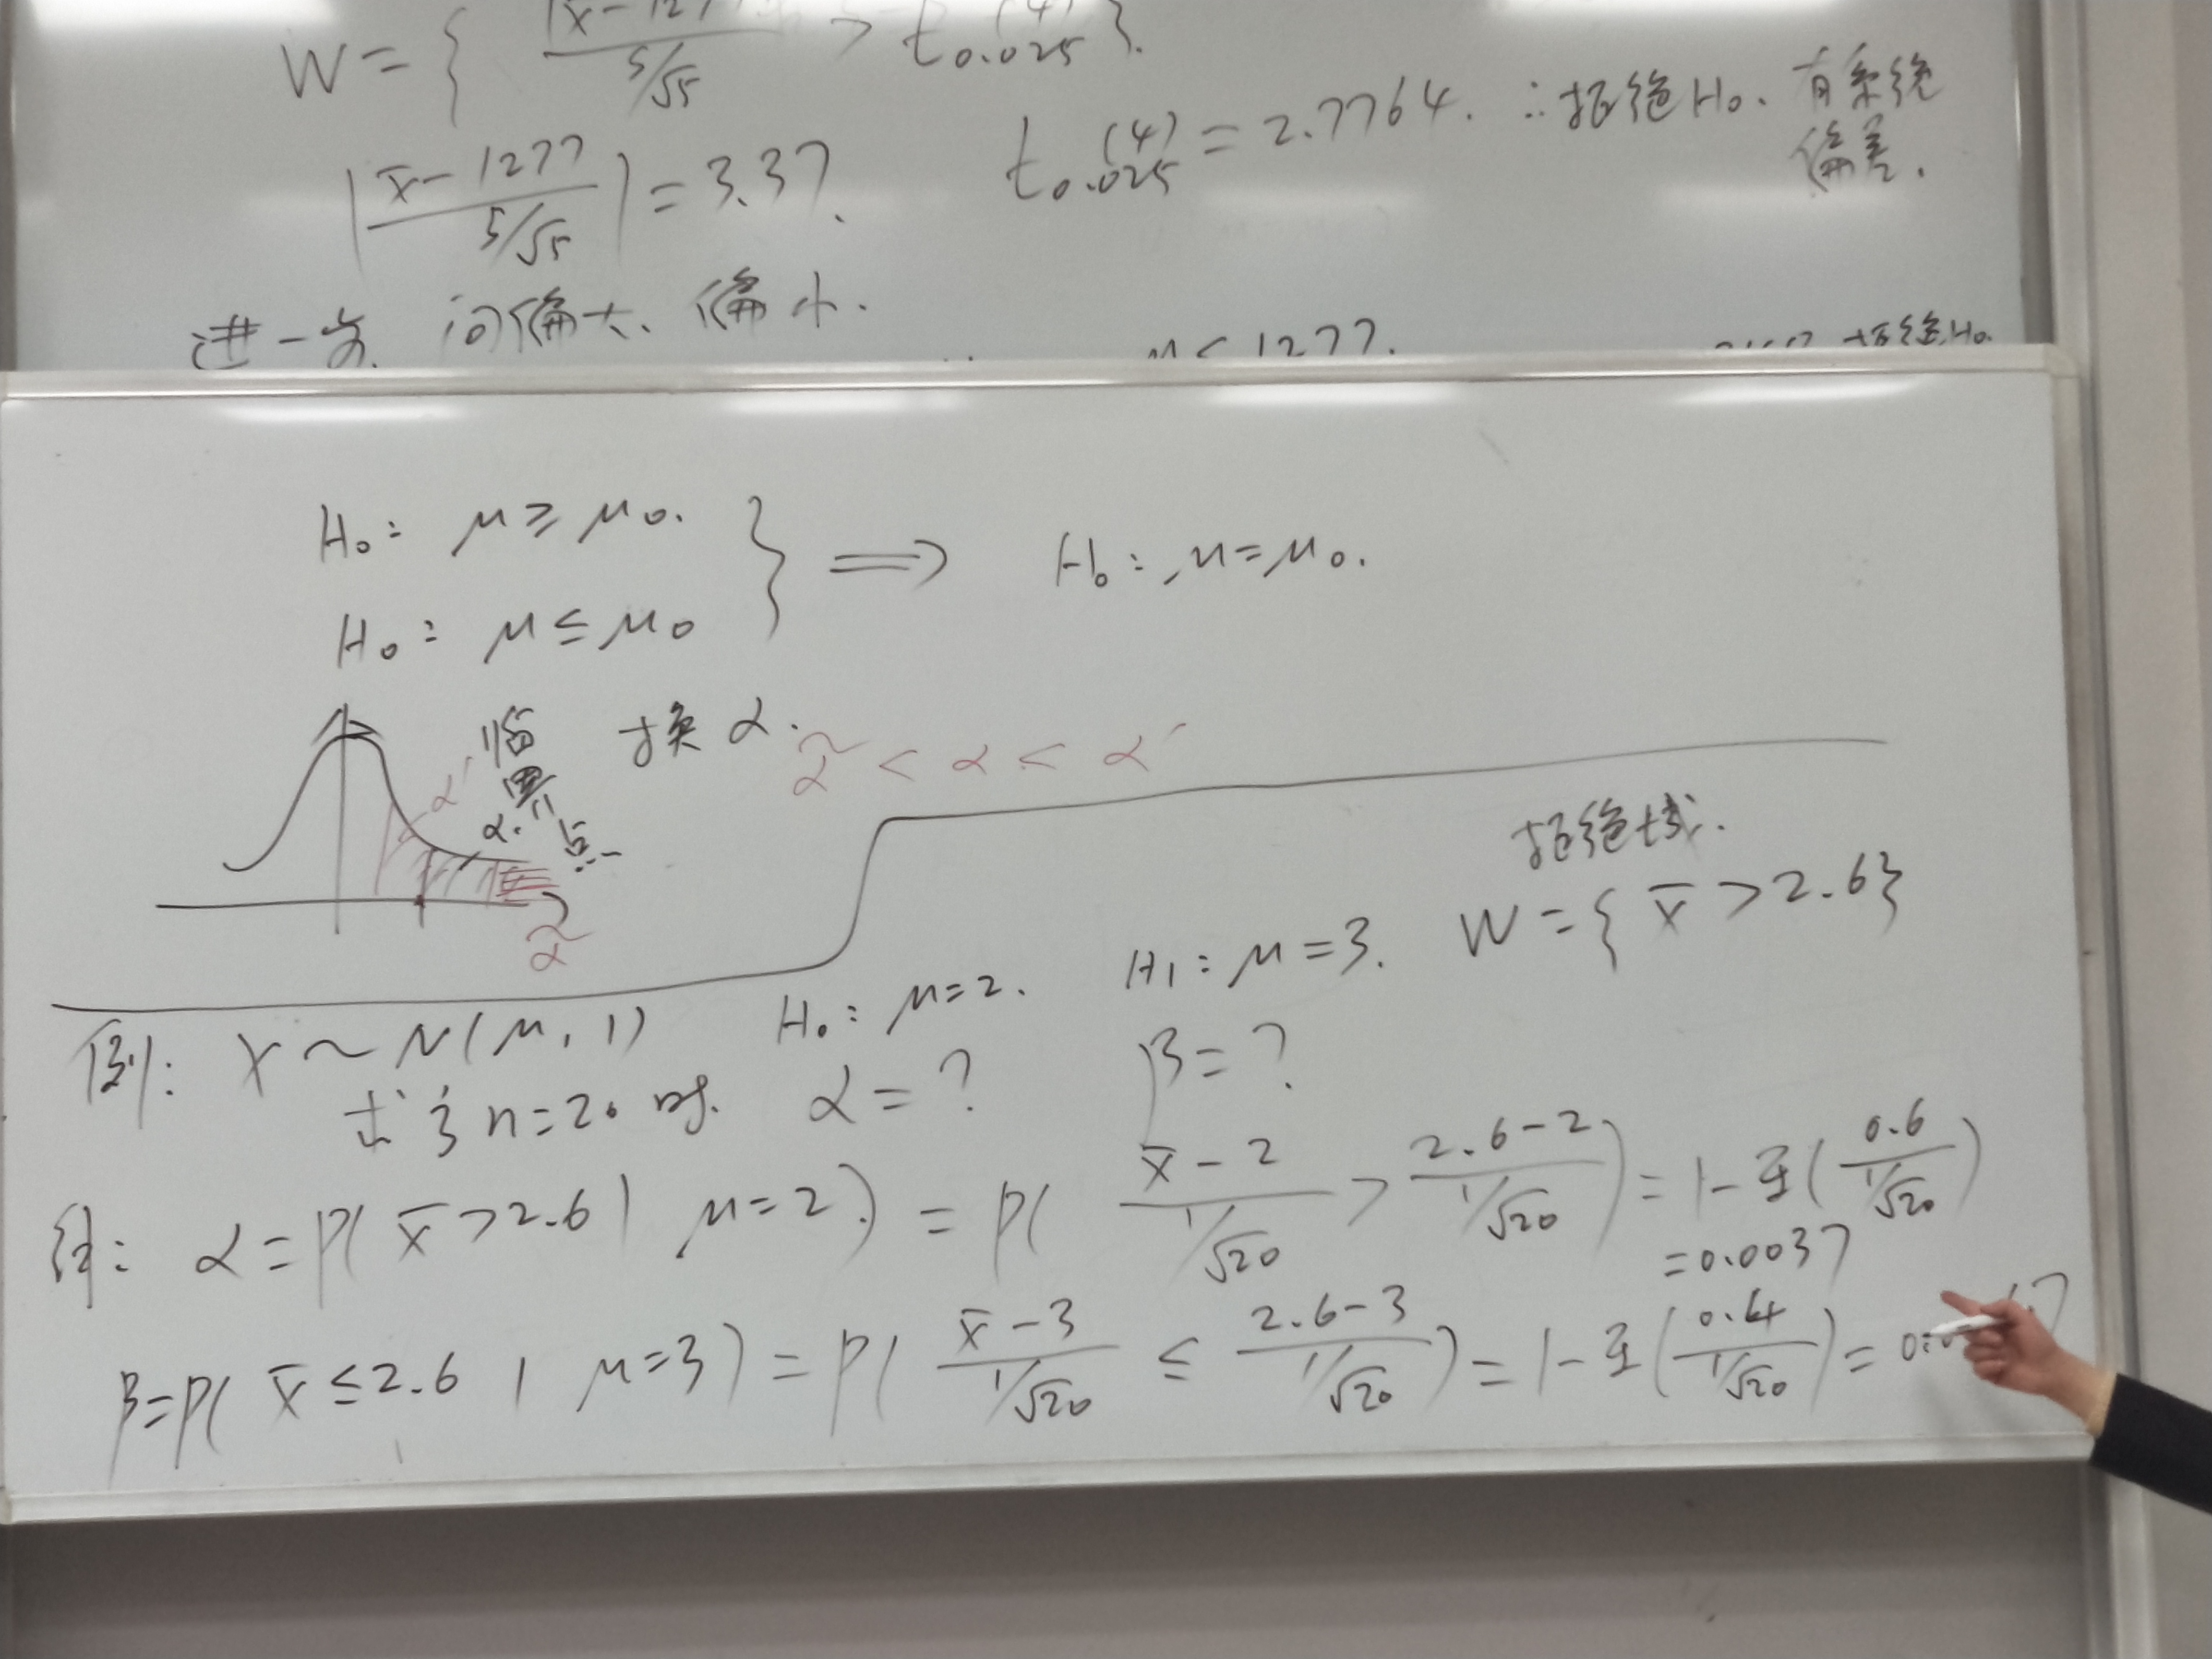 W = { |x̄ - 127 / s/√5 > t₀.₀₂₅(4) }.
| x̄ - 1277 / s/√5 | = 3.37. t₀.₀₂₅(4) = 2.7764. ∴拒绝H₀. 有系统
偏差.
进一步. 问偏大、偏小.
μ ≤ 1277. 拒绝H₀.
H₀: μ ≥ μ₀.
H₀: μ ≤ μ₀ } ⟹ H₀: μ = μ₀.
临界点 换α. α̃ < α < α′
α′
α.
α̃
拒绝域.
H₀: μ=2. H₁: μ=3. W = { x̄ > 2.6 }
例: X ~ N(μ, 1)
求当n=20时. α = ? β = ?
解: α = P( x̄ > 2.6 | μ=2 ) = P( x̄ - 2 / 1/√20 > 2.6-2 / 1/√20 ) = 1-Φ( 0.6 / 1/√20 )
= 0.0037
β = P( x̄ ≤ 2.6 | μ=3 ) = P( x̄ - 3 / 1/√20 ≤ 2.6-3 / 1/√20 ) = 1-Φ( 0.4 / 1/√20 ) = 0.